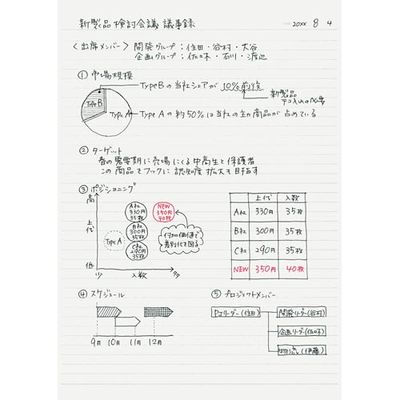 新製品検討会議 議事録
20XX 8 4
〈出席メンバー〉 開発グループ：住田・谷村・大谷
企画グループ：佐々木・石川・渡辺
① 市場規模
Type B の当社シェアが 10%前後
新製品
Type B
Type A
Type A の約50%は当社の主力商品が占めている
② ターゲット
春の需要期に売場にくる中高生と保護者
この商品をフックに認知度拡大を目指す
③ ポジショニング
高
上代
低
少
入数
多
Type A
A社 330円 35枚
B社 300円 35枚
C社 290円 35枚
NEW 350円 40枚
差別化を図る
上代 入数
A社 330円 35枚
B社 300円 35枚
C社 290円 35枚
NEW 350円 40枚
④ スケジュール
9月 10月 11月 12月
⑤ プロジェクトメンバー
PJリーダー(住田)
開発リーダー(谷村)
企画リーダー(佐々木)
物流(伊藤)